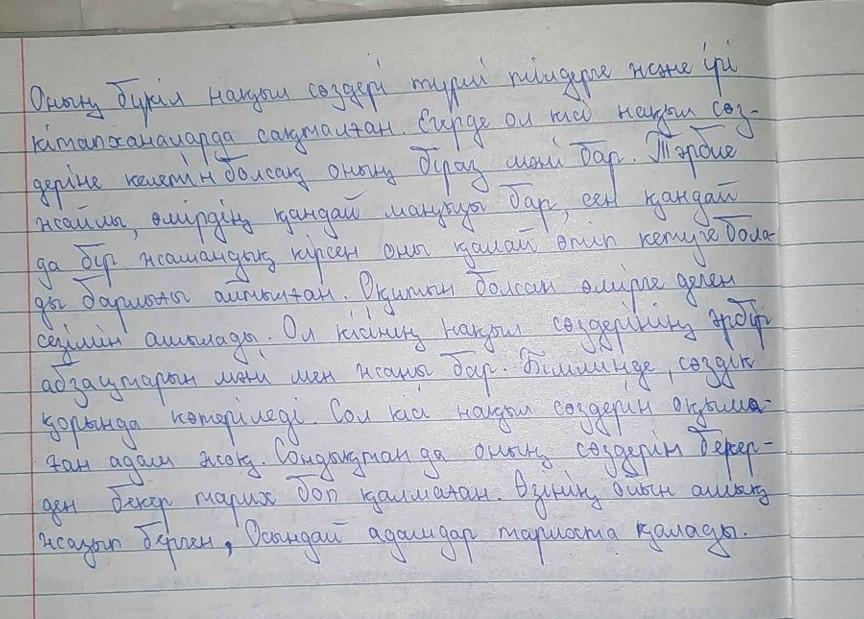 Оның бүкіл нақыл сөздері түрлі тілдерге және ірі
кітапханаларда сақталған. Егерде ол кісі нақыл сөз-
деріне келетін болсақ оның біраз мәні бар. Тәрбие
жайлы, өмірдің қандай маңызы бар, сен қандай
да бір жамандық кірсен оны қалай өтіп кетуге бола-
ды барлығы айтылған. Оқитын болсан өмірге деген
сезімін ашылады. Ол кісінің нақыл сөздерінің әрбір
абзацтарын мәні мен жаны бар. Біліміңде, сөздік
қорында көтеріледі. Сол кісі нақыл сөздерін оқыма-
ған адам жоқ. Сондықтан да оның сөздерін бекер-
ден бекер тарих боп қалмаған. Өзінің ойын ашық
жазып берген, Осындай адамдар тарихта қалады.